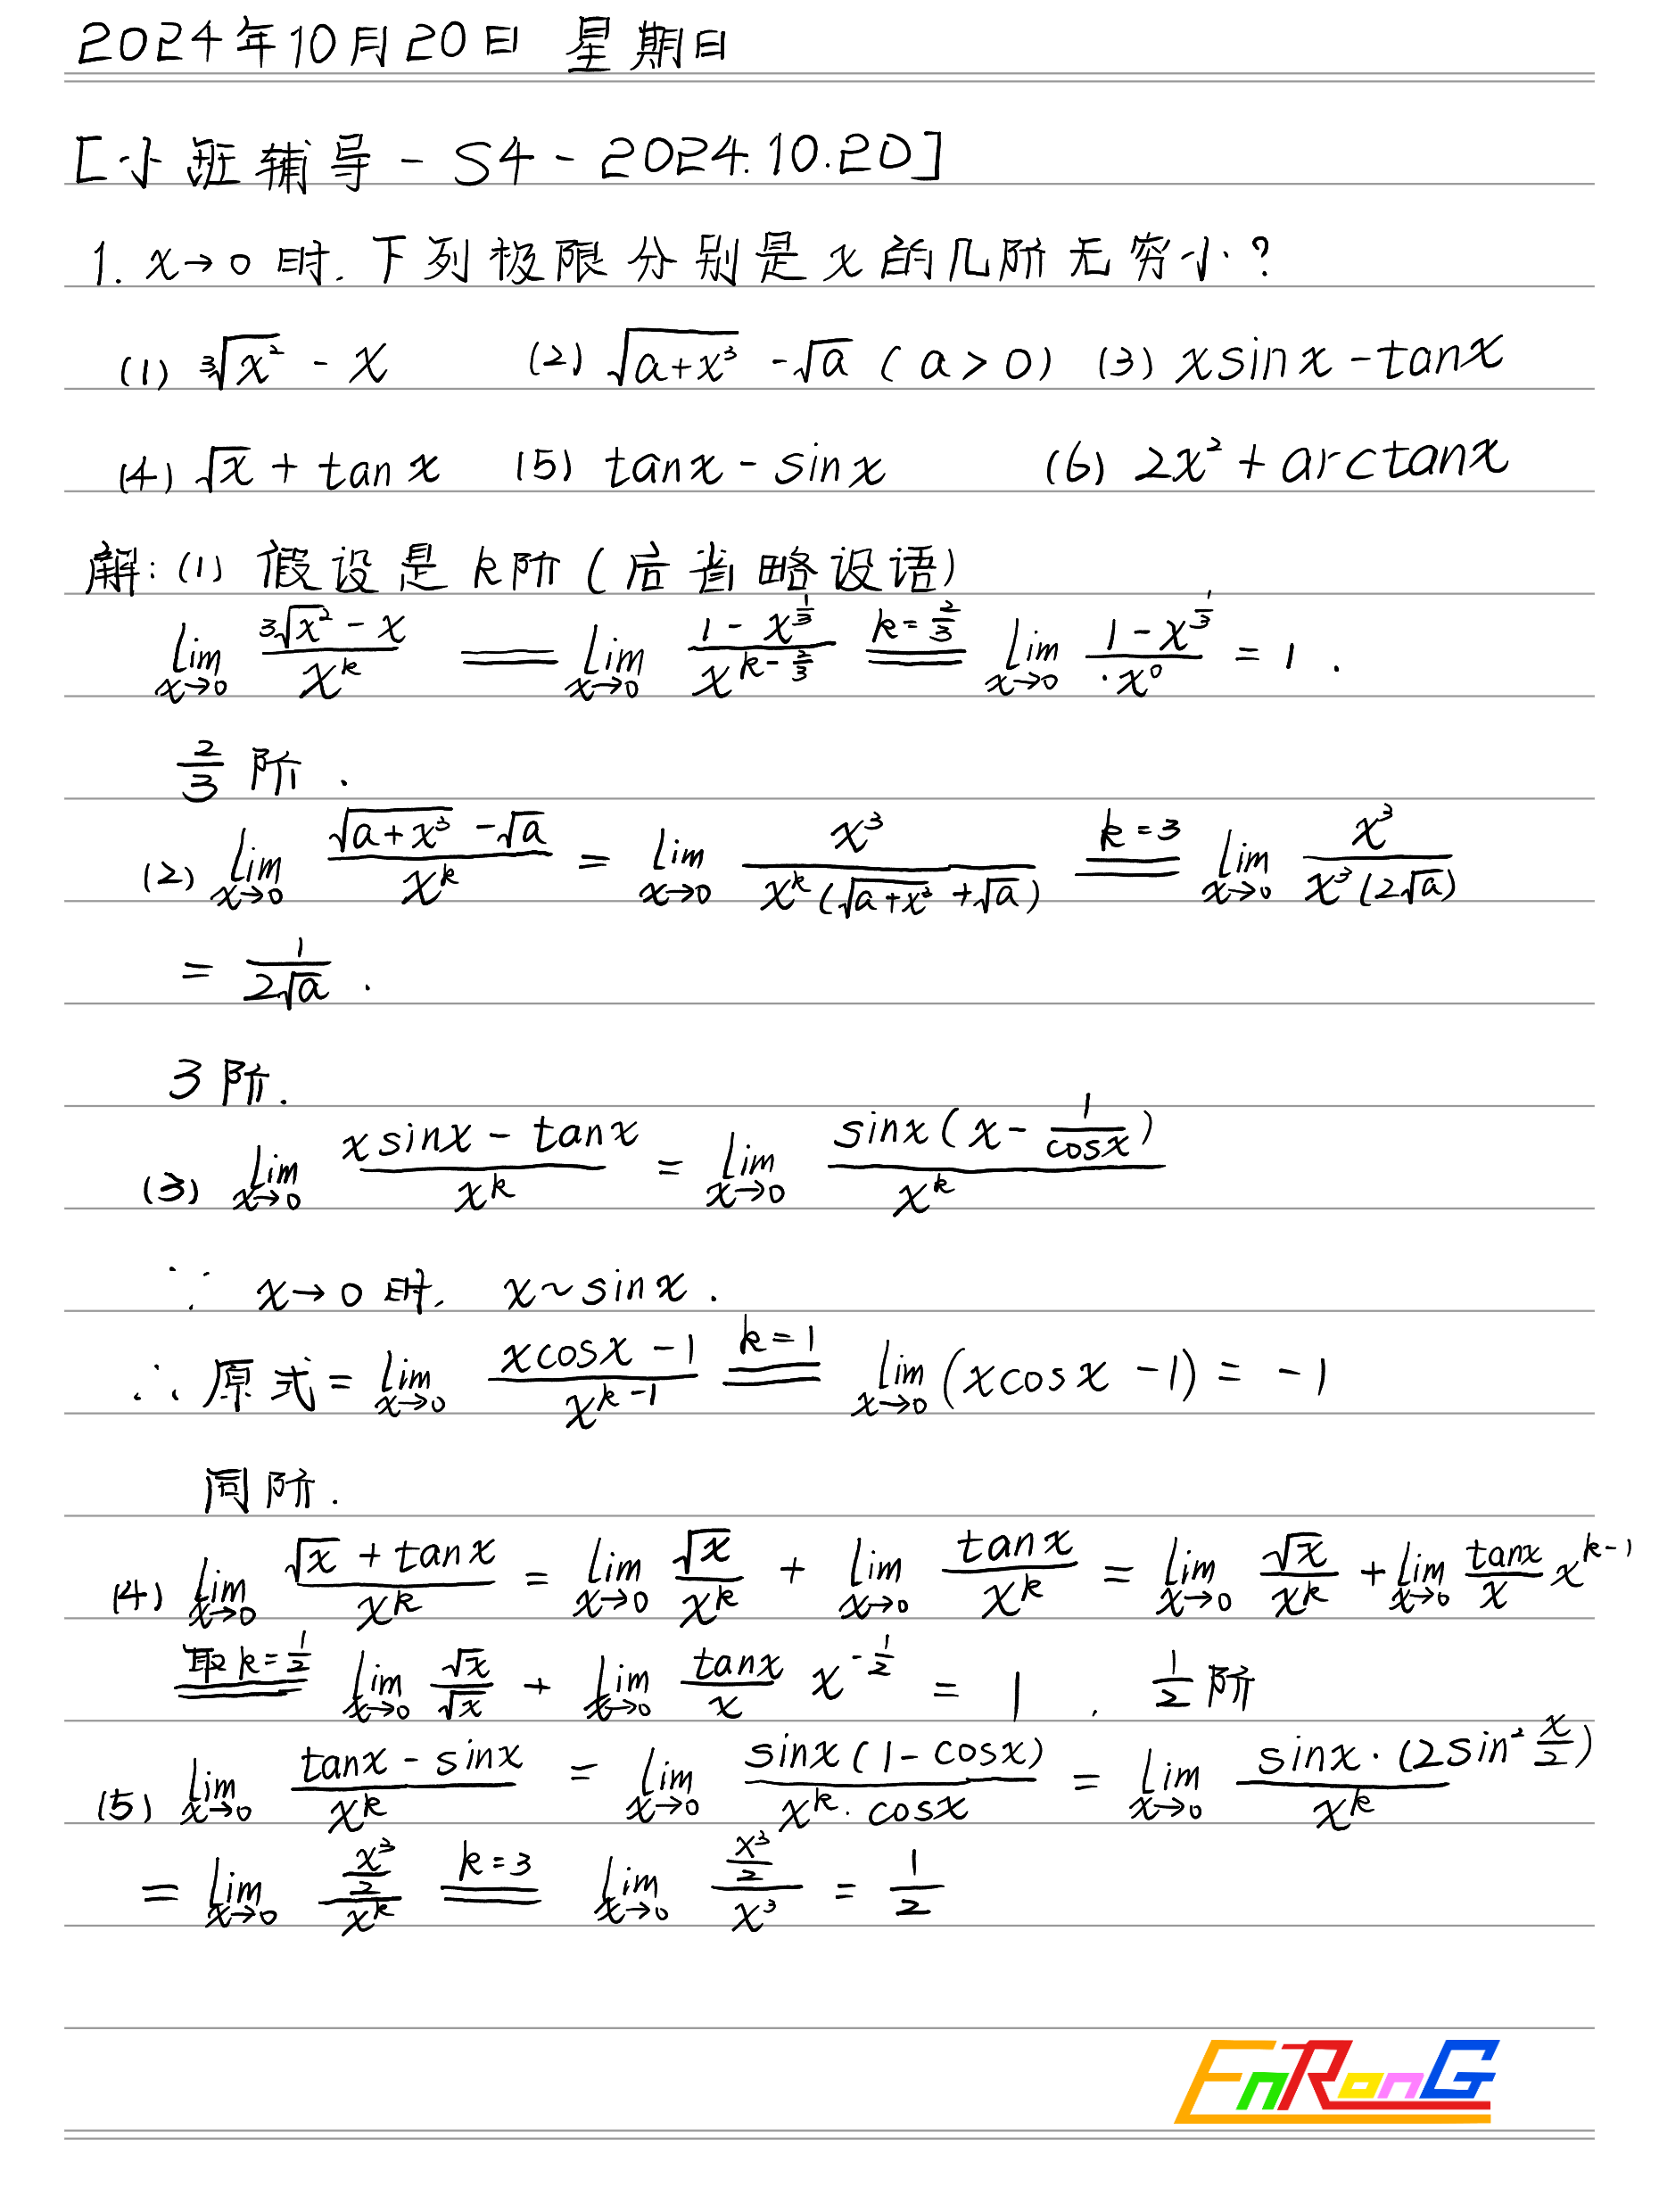 2024年10月20日 星期日
[小班辅导-S4-2024.10.20]
1. x→0 时. 下列极限分别是 x 的几阶无穷小?
(1) ∛x² - x (2) √(a+x³) - √a (a>0) (3) xsinx - tanx
(4) √x + tanx (5) tanx - sinx (6) 2x² + arctanx
解: (1) 假设是 k阶 (后省略设语)
lim_{x→0} (∛x² - x)/x^k == lim_{x→0} (1 - x^{1/3})/x^{k-2/3} ==(k=2/3) lim_{x→0} (1 - x^{1/3})/x^0 = 1 .
2/3 阶 .
(2) lim_{x→0} (√(a+x³) - √a)/x^k = lim_{x→0} x³/(x^k(√(a+x³) + √a)) ==(k=3) lim_{x→0} x³/(x³(2√a))
= 1/(2√a) .
3 阶.
(3) lim_{x→0} (xsinx - tanx)/x^k = lim_{x→0} sinx(x - 1/cosx)/x^k
∵ x→0 时, x~sinx .
∴ 原式 = lim_{x→0} (xcosx - 1)/x^{k-1} ==(k=1) lim_{x→0} (xcosx - 1) = -1
同阶.
(4) lim_{x→0} (√x + tanx)/x^k = lim_{x→0} √x/x^k + lim_{x→0} tanx/x^k = lim_{x→0} √x/x^k + lim_{x→0} (tanx/x) x^{k-1}
==(取k=1/2) lim_{x→0} √x/√x + lim_{x→0} (tanx/x) x^{-1/2} = 1 . 1/2 阶
(5) lim_{x→0} (tanx - sinx)/x^k = lim_{x→0} sinx(1-cosx)/(x^k·cosx) = lim_{x→0} sinx·(2sin² x/2)/x^k
= lim_{x→0} (x³/2)/x^k ==(k=3) lim_{x→0} (x³/2)/x³ = 1/2
EnRonG